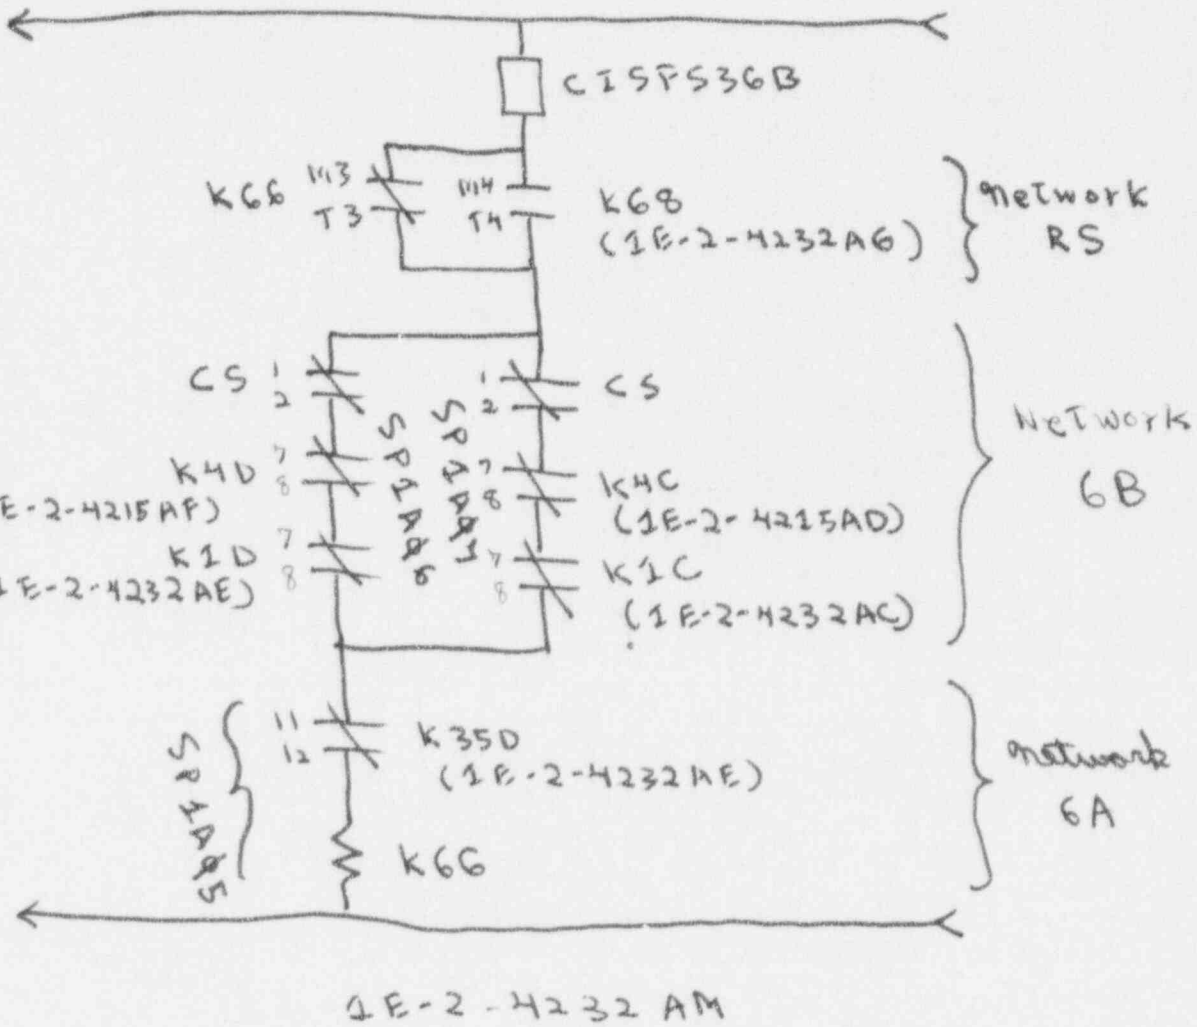 CISFS36B
K66 M3
T3
M4
T4
K68
(1E-2-4232AG)
Network
RS
CS 1
2
1
2
CS
SP1A06
SP1A07
Network
6B
K4D 7
8
E-2-4215AF)
7
8
K4C
(1E-2-4215AD)
K1D 7
8
1E-2-4232AE)
7
8
K1C
(1E-2-4232AC)
SP1A05
11
12
K35D
(1E-2-4232AE)
Network
6A
K66
1E-2-4232 AM